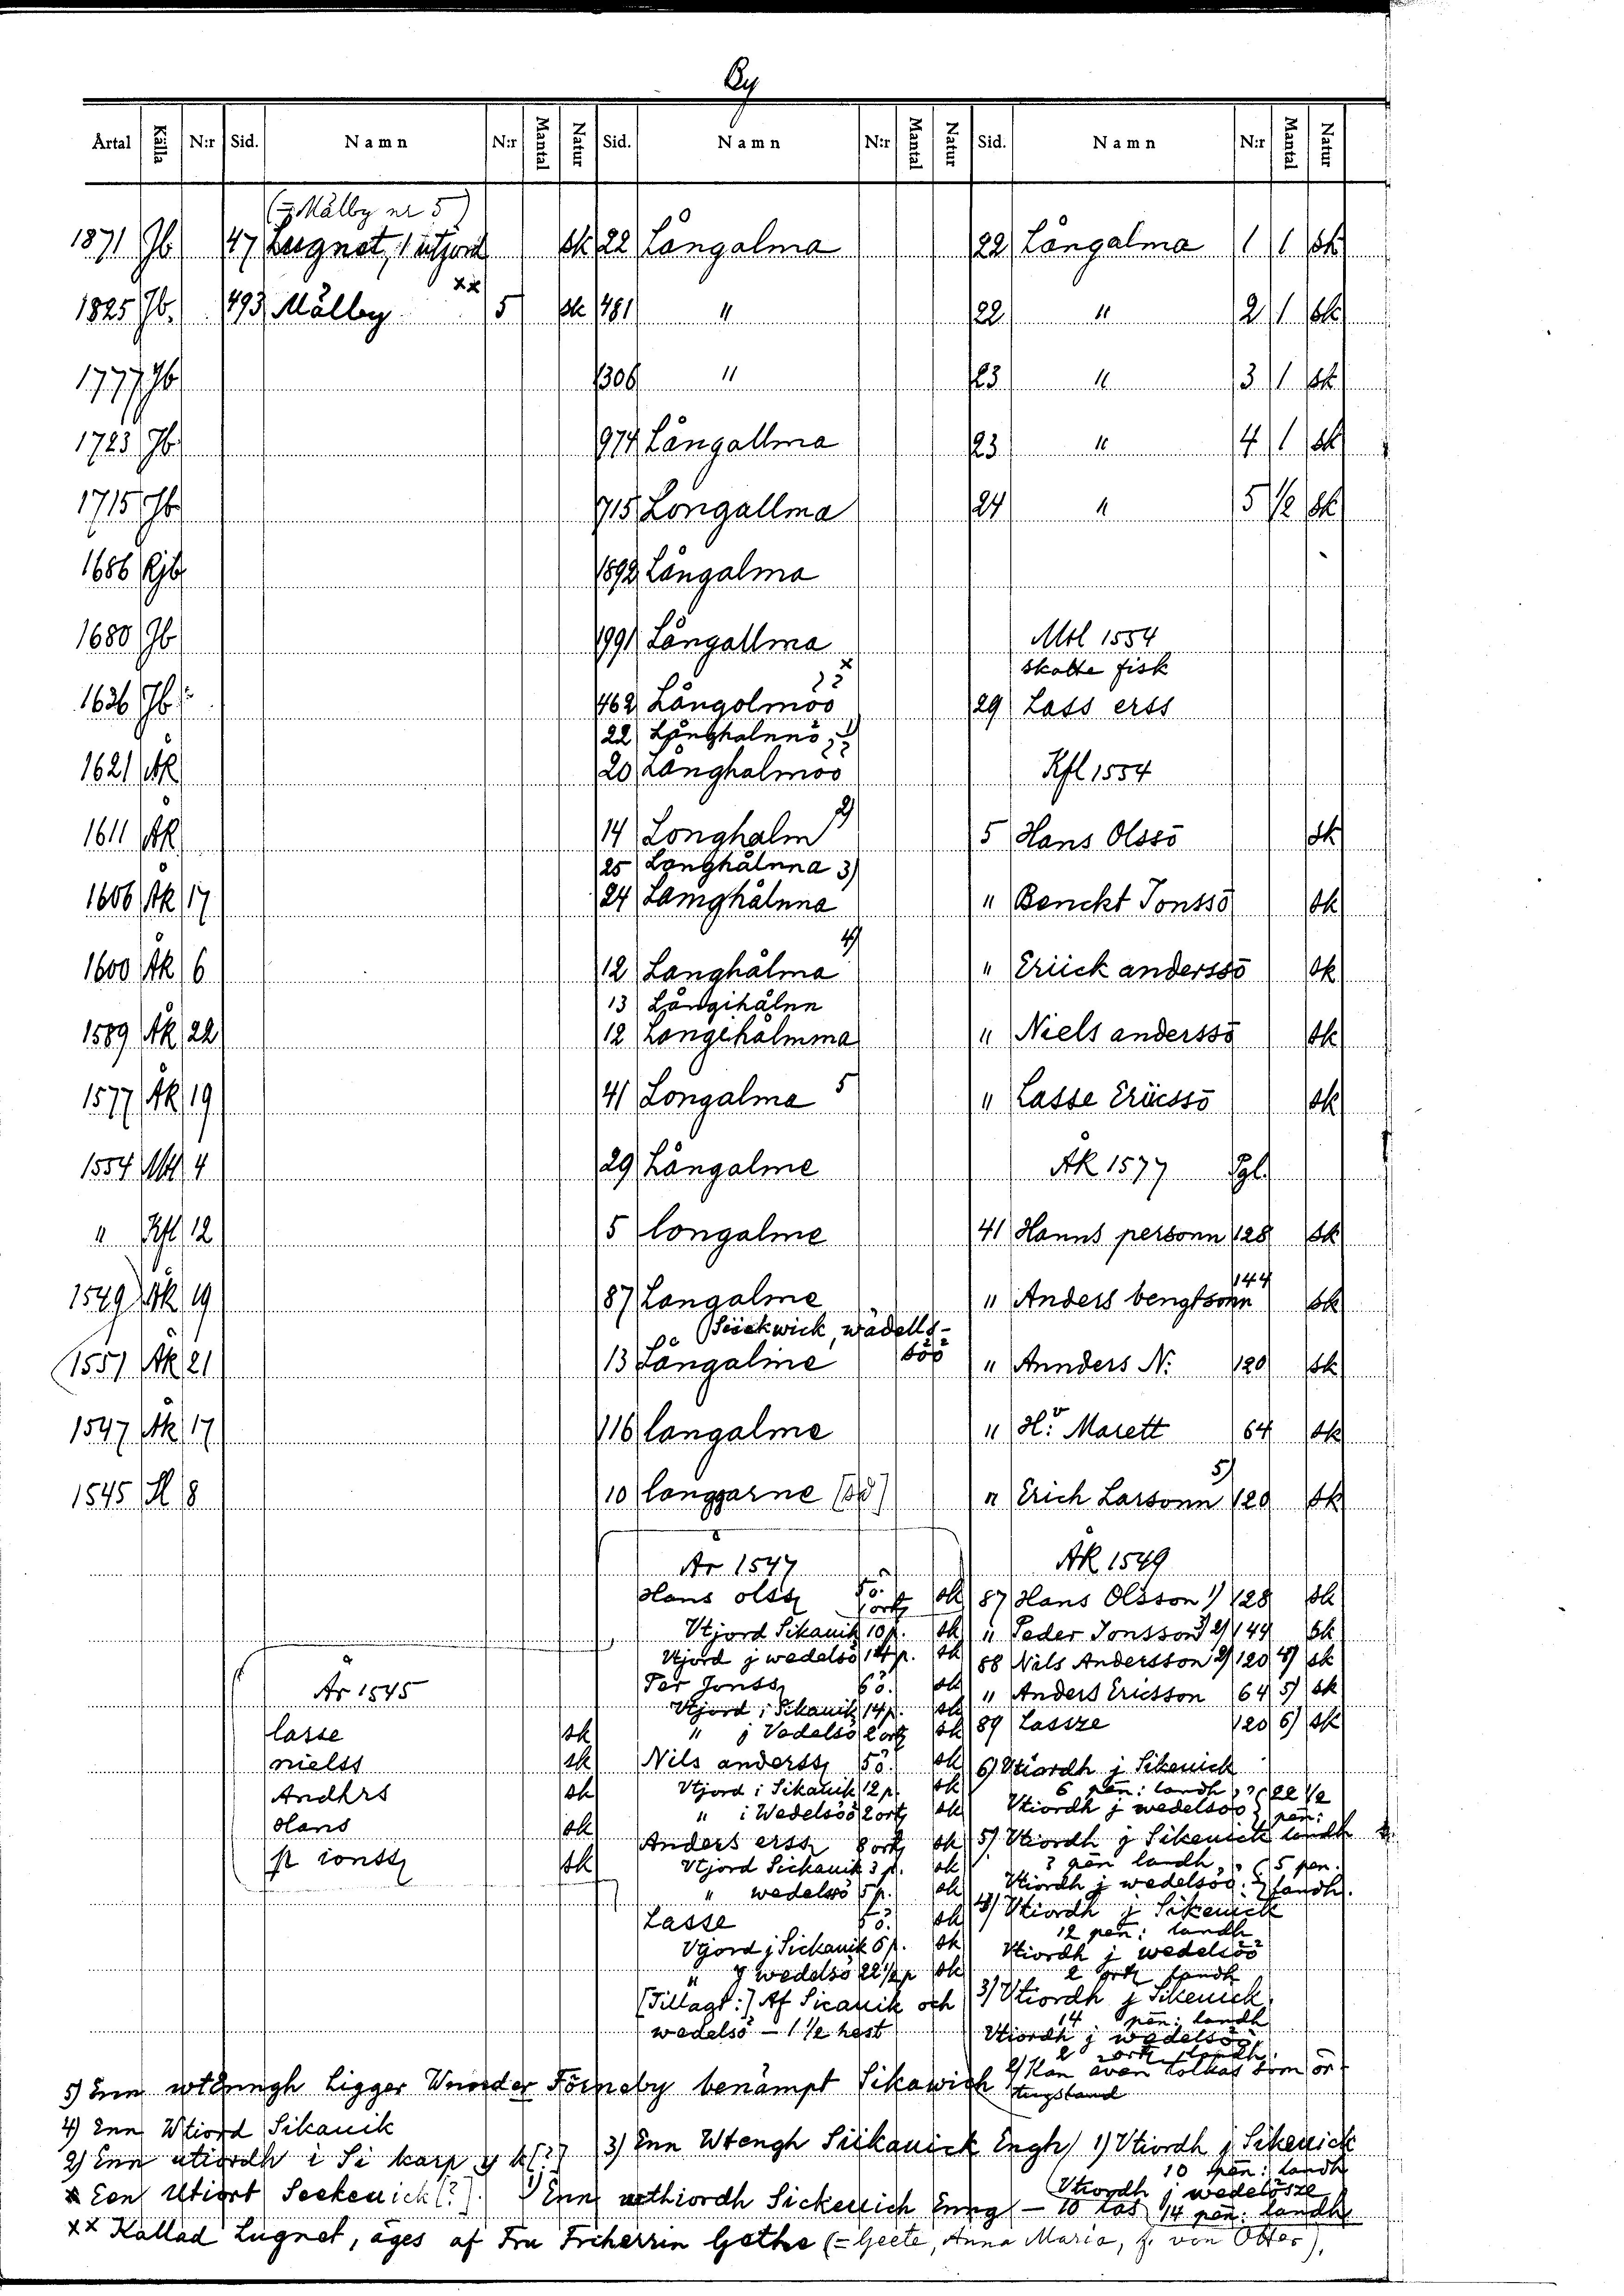 By
Årtal Källa N:r Sid. Namn N:r Mantal Natur Sid. Namn N:r Mantal Natur Sid. Namn N:r Mantal Natur
(= Mälby nr 5)
1871 Jb 47 Lugnet, 1 utjord sk 22 Långalma 22 Långalma 1 1 sk
1825 Jb. 493 Mälby xx 5 sk 481 " 22 " 2 1 sk
1777 Jb 1306 " 23 " 3 1 sk
1723 Jb 974 Långallma 23 " 4 1 sk
1715 Jb 715 Longallma 24 " 5 1/2 sk
1686 Rjb 1892 Långalma
1680 Jb 1991 Långallma Mtl 1554
skatte fisk
1636 Jb 462 Långolmöö x 29 Lass erss
22 Långhalnnö 1)
1621 ÅK 20 Långhalmöö Kfl 1554
1611 ÅK 14 Longhalm 2) 5 Hans Olssö sk
25 Longhålnna 3)
1606 ÅK 17 24 Lamghålnna " Benckt Jonssö sk
1600 ÅK 6 12 Langhålma 4) " Eriick anderssö sk
13 Långihålnn
1589 ÅK 22 12 Langehålmma " Niels anderssö sk
1577 ÅK 19 41 Longalma 5 " Lasse Eriicssö sk
1554 Mtl 4 29 Långalme ÅK 1577 Pgl.
" Kfl 12 5 longalme 41 Hanns personn 128 sk
1549 ÅK 19 87 Langalme " Anders bengtsonn 144 sk
(Siickwick, wädells-
1551 ÅK 21 13 Långalme söö " Annders N: 120 sk
1547 ÅK 17 116 langalme " H: Marett 64 sk
1545 Sl 8 10 longgarne " Erich Larsonn 5) 120 sk
År 1547 ÅK 1549
Hans olss 5 ö. 1 ort sk 87 Hans Olsson 1) 128 sk
Vtjord Sikauik 10 p. sk " Peder Jonsson 2) 144 sk
Vtjord j wedelsö 14 p. sk 88 Nils Andersson 2) 120 4) sk
År 1545 Per Jonss 6 ö. sk " Anders Ericsson 64 5) sk
Vtjord i Sikauik 14 p. sk
lasse sk " j Vedelsö 2 ort sk 89 Lassze 120 6) sk
nielss sk Nils anderss 5 ö. sk 6) Vtiordh j Sikenick
Andhrs sk Vtjord i Sikauik 12 p. sk 6 pen: landh 22 1/2
" i Wedelsöö 2 ort sk Vtiordh j wedelsöö pen:
Hans sk Anders erss 8 ort sk 5) Vtiordh j Sikenick landh
p ionss sk Vtjord Sickauik 3 p. sk 3 pen landh, 5 pen.
" wedelsö 5 p. sk Vtiordh j wedelsöö landh.
Lasse 5 ö. sk 4) Vtiordh j Sikenick
12 pen: landh
Vtjord j Sickauik 6 p. sk Vtiordh j wedelsöö
" j wedelsö 22 1/2 p sk 2 ort landh
[Tillagt:] Af Sicauik och 3) Vtiordh j Sikenick
14 pen: landh
wedelsö - 1 1/2 hest Vtiordh j wedelsöö
2 ort landh.
2) Kan även tolkas som ör-
tugsland
5) Enn wtEnngh Ligger Wnnder Förneby benämpt Sikawich
4) Enn Wtiord Sikauik
2) Enn utiordh i Si karp y k[?] 3) Enn Wtengh Siikauick Engh 1) Vtiordh j Sikenick
10 pen: landh
x Een Utiort Seekenick [?]. 1) Enn wthiordh Sickenich Enng - 10 las Vtiordh j wedelösze
14 pen: landh
xx Kallad Lugnet, äges af Fru Friherrin Gethe (= Geete, Anna Maria, f. von Otter).